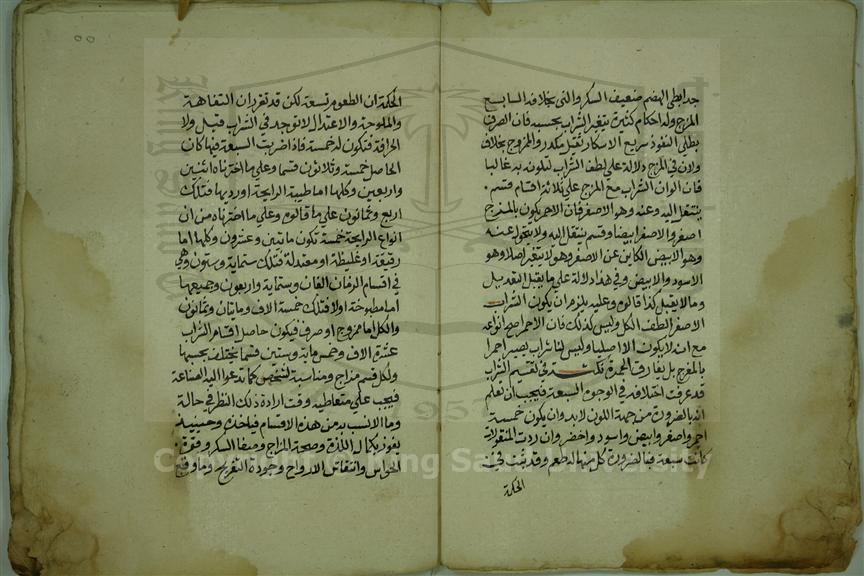 جدا بطي الهضم ضعيف السكر والتي بخلافه السابع
المزج وله احكام كثيرة بتغير الشراب بحسبه فان الصرف
بطئ النفوذ سريع الاسكار ثقيل مكدر والممزوج بخلافه
ولان في المزج دلالة على لطف الشراب لتلونه به غالبا
فان الوان الشراب مع المزج على ثلاثة اقسام قسم
ينتقل اليه وعنه وهو الاصفر فان الاحمر يكون بالمزج
اصفر والاصفر ابيضا وقسم ينتقل اليه ولا يتحول عنه
وهو الابيض الكاين عن الاصفر وهو لا يتغير اصلا وهو
الاسود والابيض وفي هذا دلالة على ما يقبل التعديل
وما لا يقبل كذا قالوه وعليه يلزم ان يكون الشراب
الاصفر الطف الكل وليس كذلك فان الاحمر اصح انواعه
مع انه لا يكون الا اصليا وليس لنا شراب يصير احمرا
بالمزج بل يفارق الحمرة في تقسيم الشراب
قد عرفت اختلافه في الوجوه السبعة فيجب ان تعلم
انه بالضرورة من جهة اللون لا بد وان يكون خمسة
احمر واصفر وابيض واسود واخضر وان زدت المنتقلات
كانت سبعة فبالضرورة كل منها له طعم وقد ثبت في
الحكمة
٥٥
الحكمة ان الطعوم تسعة لكن قد تقرر ان التفاهة
والملوحة والاعتدال لا توجد في الشراب قيل ولا
الحرافة فتكون له خمسة فاذا ضربت السبعة فيها كان
الحاصل خمسة وثلاثون قسما وعلى ما اخترناه اثنين
واربعين وكلها اما طيبة الرايحة او رديها فتلك
اربع وثمانون على ما قالوه وعلى ما اخترناه من ان
انواع الرايحة خمسة تكون ماتين وعشرون وكلها اما
رقيقة او غليظة او معتدلة فتلك ستماية وستون وهي
في اقسام الزمان الفان وستماية واربعون وجميعها
اما مطبوخة اولا فتلك خمسة الاف ومايتان وثمانون
والكل اما ممزوج او صرف فيكون حاصل اقسام الشراب
عشرة الاف وخمس ماية وستين قسما يختلف بحسبها
ولكل قسم مزاج ومناسبة لشخص كما تدعوا اليه الصناعة
فيجب على متعاطيه وقت ارادة ذلك النظر في حاله
وما الانسب به من هذه الاقسام فياخذه وحينيذ
يفوز بكمال اللذة وصحة المزاج وصفا السكر وقوة
الحواس وانتعاش الارواح وجودة التفريح وما وقع